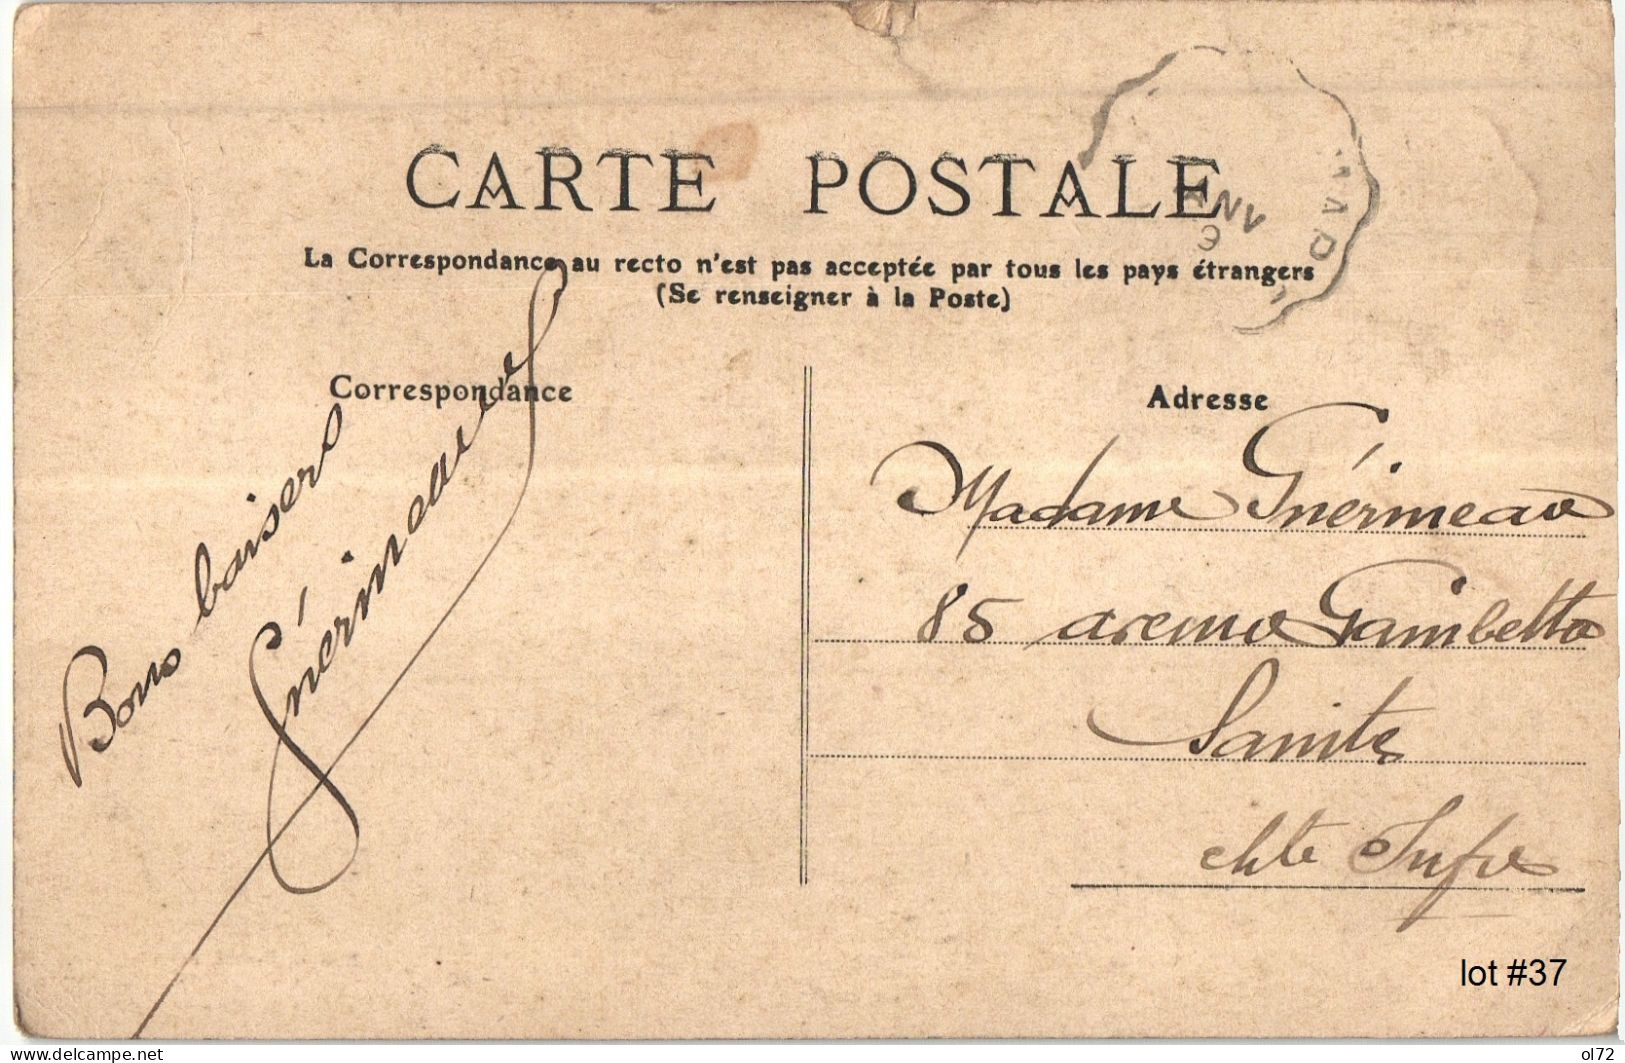 CARTE POSTALE
La Correspondance au recto n'est pas acceptée par tous les pays étrangers
(Se renseigner à la Poste)
Correspondance
Bons baisers
Guérineau
Adresse
Madame Guérineau
85 avenue Gambetta
Saintes
chte Infre
lot #37
www.delcampe.net
ol72